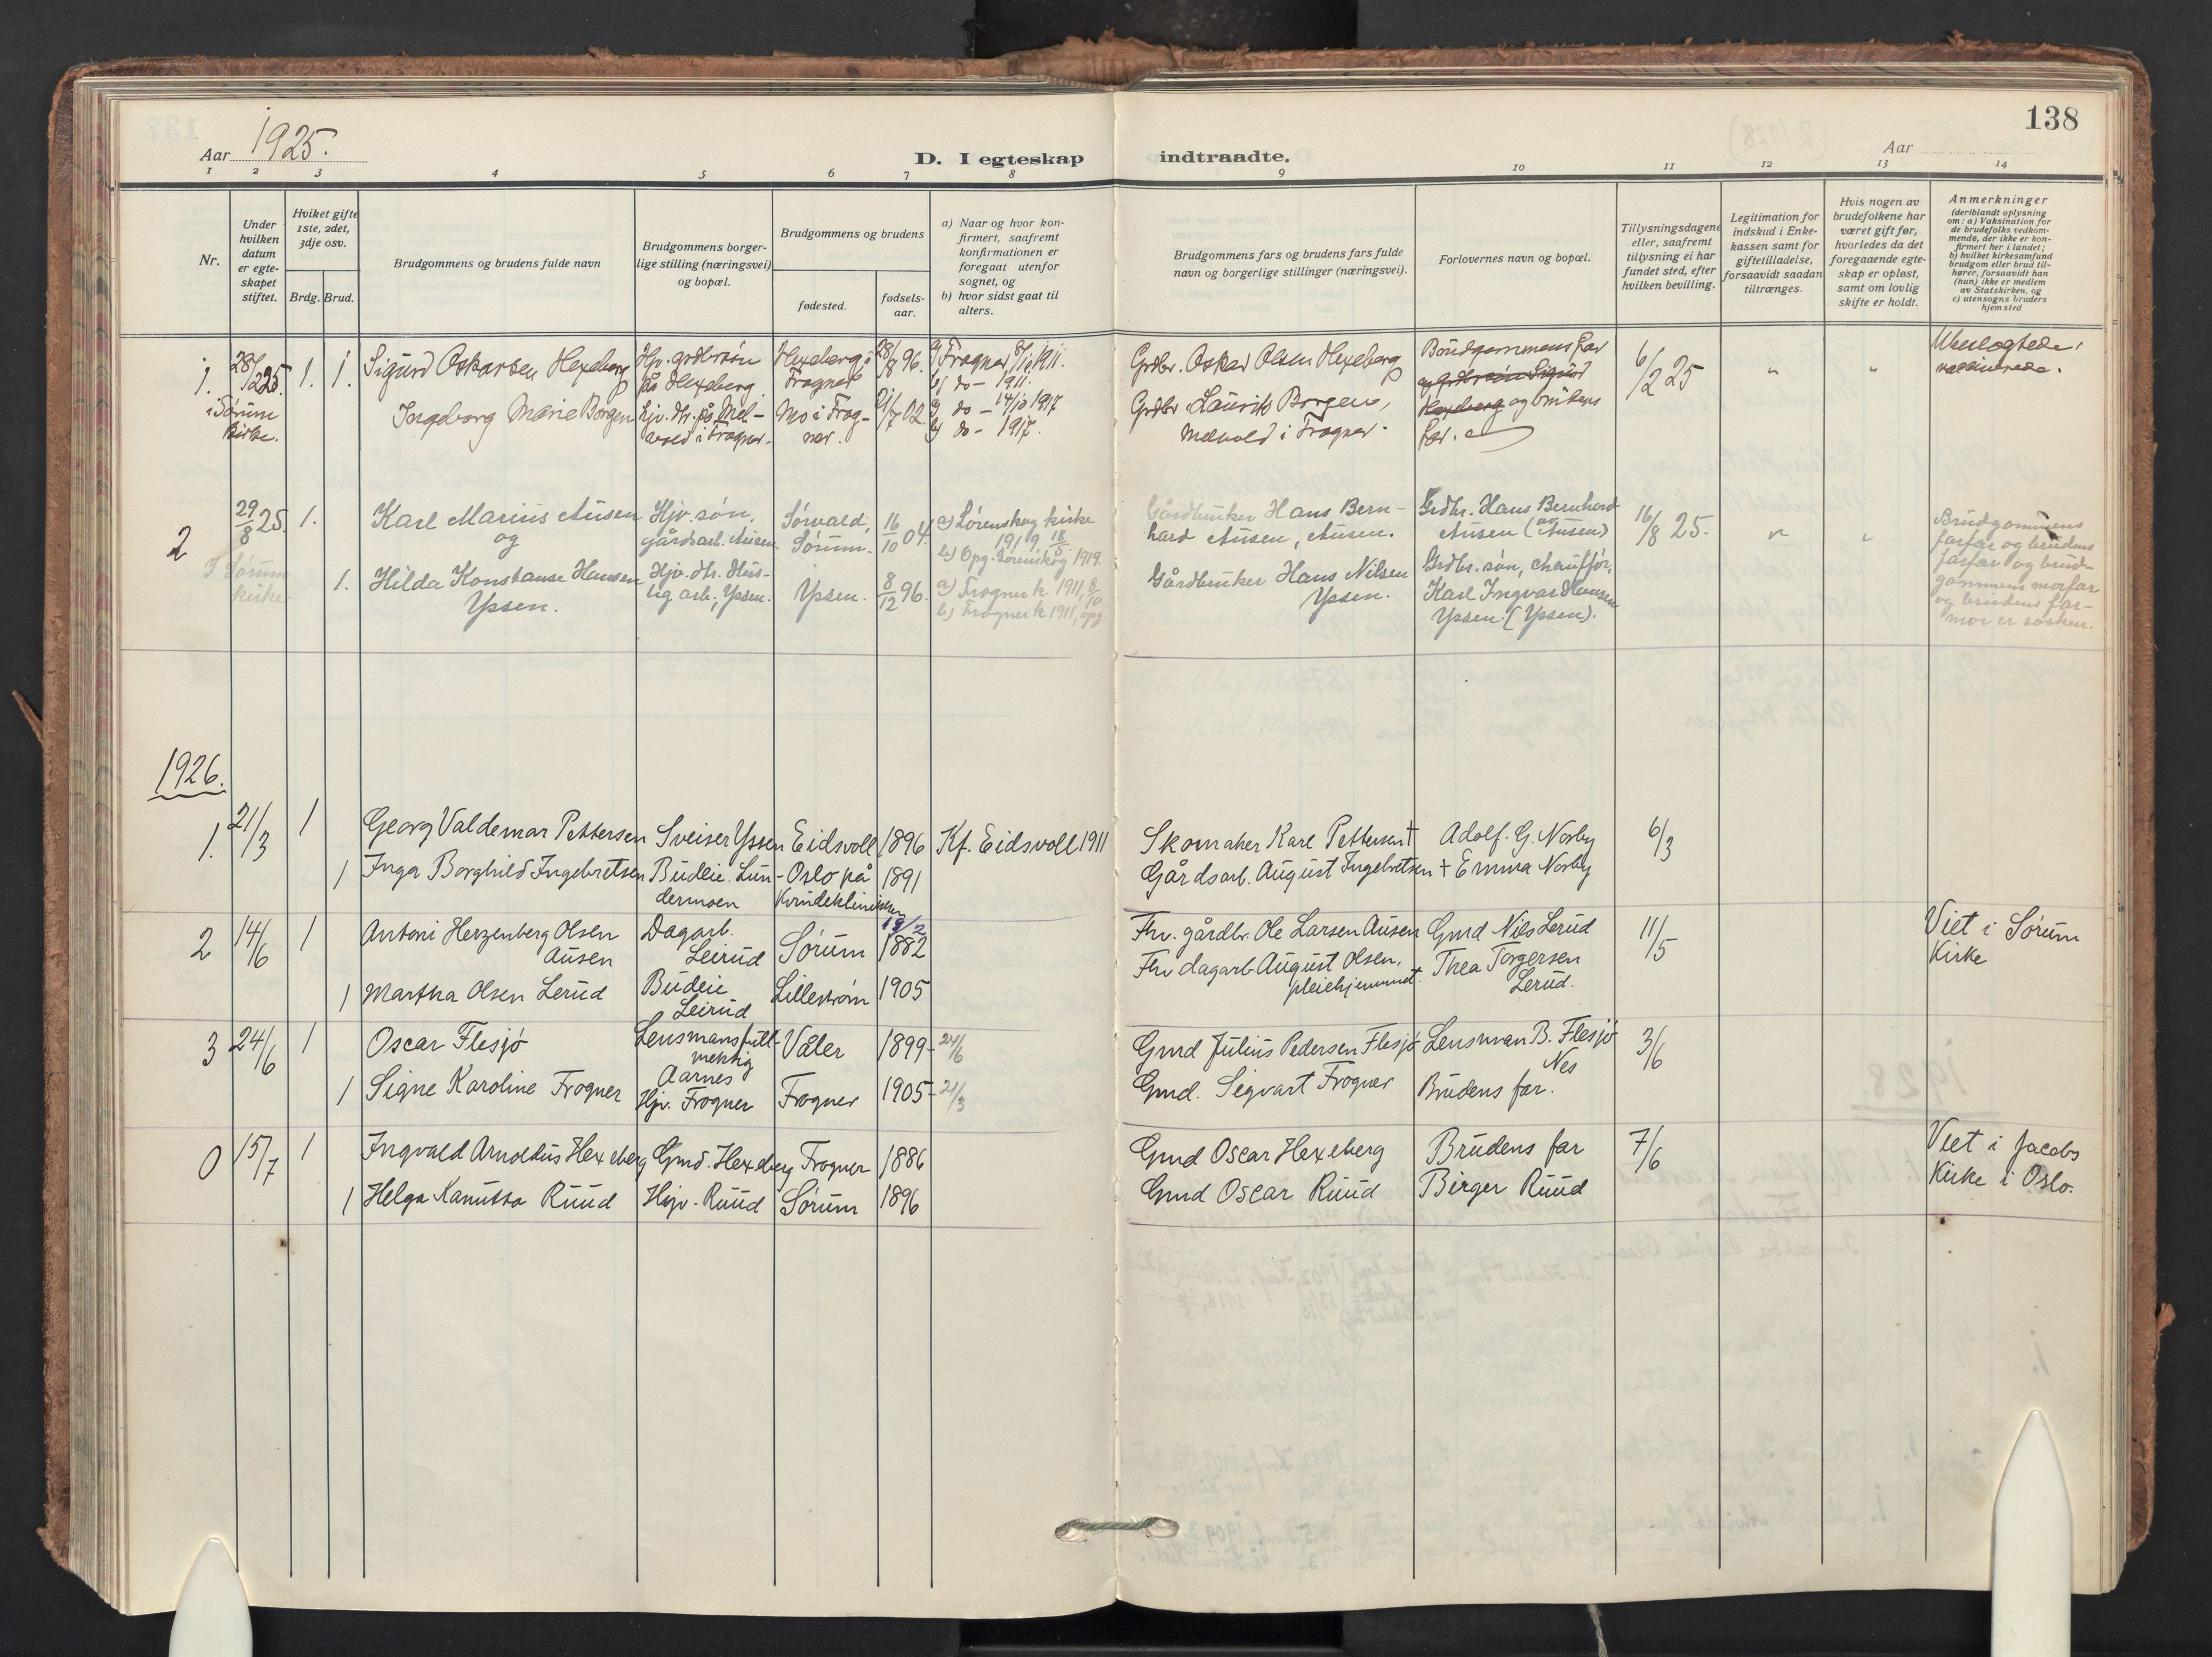 138
Aar 1925.
D. I egteskap indtraadte.
Aar
1 2 3 4 5 6 7 8 9 10 11 12 13 14
Nr.
Under hvilken datum er egteskapet stiftet.
Hviket gifte 1ste, 2det, 3dje osv.
Brdg. Brud.
Brudgommens og brudens fulde navn
Brudgommens borgerlige stilling (næringsvei) og bopæl.
Brudgommens og brudens
fødested.
fødselsaar.
a) Naar og hvor konfirmert, saafremt konfirmationen er foregaat utenfor sognet, og
b) hvor sidst gaat til alters.
Brudgommens fars og brudens fars fulde navn og borgerlige stillinger (næringsvei).
Forlovernes navn og bopæl.
Tillysningsdagene eller, saafremt tillysning ei har fundet sted, efter hvilken bevilling.
Legitimation for indskud i Enkekassen samt for giftetilladelse, forsaavidt saadan tiltrænges.
Hvis nogen av brudefolkene har været gift før, hvorledes da det foregaaende egteskap er opløst, samt om lovlig skifte er holdt.
Anmerkninger
(deriblandt oplysning om: a) Vaksination for de brudefolks vedkommende, der ikke er konfirmert her i landet; b) hvilket kirkesamfund brudgom eller brud tilhører, forsaavidt han (hun) ikke er medlem av Statskirken, og c) utensogns bruders hjemsted
1. 28/2 25. 1. 1. Sigurd Oskarsen Hexeberg Hjv. grdbr.søn på Hexeberg Hexeberg i Frogner 28/8 96. a) Frogner, 8/10 1911. b) do - 1911.
i Sørum kirke.
Ingeborg Marie Borgen hjv. dr. på Melvold i Frogner. Mo i Frogner. 21/7 02. a) do - 14/10 1917 b) do - 1917.
Grdbr. Oskar Olsen Hexeberg
Grdbr Laurits Borgen, Melvold i Frogner.
Brudgommens far og grdbrsøn Sigurd Hexeberg og brudens far.
6/2 25 " "
Ubeslegtede, vaksinerede.
2 29/8 25. 1. Karl Marius Ausen Hjv. søn, gårdsarb. Ausen. Sørvald, Sørum. 16/10 04. a) Lørenskog kirke 1919 18/5. b) Opg. Lørenskog 1919.
og
I Sørum kirke.
1. Hilda Konstanse Hansen Yssen. Hjv. dr. Huslig arb., Yssen. Yssen. 8/12 96. a) Frogner k. 1911, 8/10 b) Frogner k 1911, opg.
Gårdbruker Hans Bernhard Ausen, Ausen.
Gårdbruker Hans Nilsen Yssen.
Grdbr. Hans Bernhard Ausen (Ausen) og
Grdbr. søn, chauffør, Karl Ingvar Hansen Yssen. (Yssen).
16/8 25. " "
Brudgommens farfar og brudens farfar og brudgommens morfar og brudens farmor er søsken.
1926.
1. 21/3 1 Georg Valdemar Pettersen Sveiser Yssen Eidsvoll 1896 Kf. Eidsvoll 1911
1 Inga Borghild Ingebretsen Budeie. Lundermoen Oslo på Kvindeklinikken 1891
Skomaker Karl Pettersen † Adolf. G. Norby 6/3
Gårdsarb. August Ingebretsen † Emma Norby
2 14/6 1 Antoni Herzenberg Olsen Ausen Dagarb. Leirud Sørum 19/2 1882
1 Martha Olsen Lerud Budeie Leirud Lillestrøm 1905
Fhv. gårdbr. Ole Larsen Ausen Gmd Nils Lerud 11/5 Viet i Sørum Kirke
Fhv dagarb August Olsen, pleiehjemmet. Thea Torgersen Lerud.
3 24/6 1 Oscar Flesjø Lensmansfullmektig Aarnes Våler 1899 - 24/6
1 Signe Karoline Frogner Hjv. Frogner Frogner 1905 - 21/3
Gmd Julius Pedersen Flesjø Lensman B. Flesjø Nes 3/6
Gmd. Sigvart Frogner Brudens far.
0 15/7 1 Ingvald Arnoldus Hexeberg Gmd. Hexeberg Frogner 1886
1 Helga Kamitta Ruud Hjv. Ruud Sørum 1896
Gmd Oscar Hexeberg Brudens far 7/6 Viet i Jacobs Kirke i Oslo.
Gmd Oscar Ruud Birger Ruud